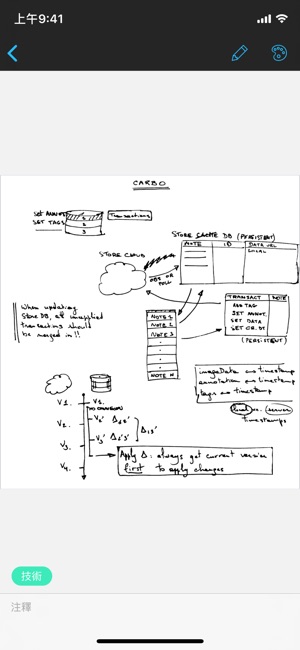 上午9:41
CARBO
Set ANNOT
SET TAGS
1
2
3
Transactions
STORE CACHE DB (PERSISTENT)
NOTE ID DATA URL
LOCAL
STORE CLOUD
OBS OR
PULL
TRANSACT NOTE
ADD TAG
SET ANNOT.
SET DATA
SET CR. DT
(PERSISTENT)
When updating
Store DB, all unapplied
transactions should
be merged in!!
NOTE 1
NOTE 2
NOTE 3
NOTE N
imageData as timestamp
annotation as timestamp
tags as timestamp
local vs. server
timestamps
V1. V1.
V2. V2' Δ12'
V3. V3' Δ2'3' Δ13'
V4.
Apply Δ: always get current version
first to apply changes
技術
注釋